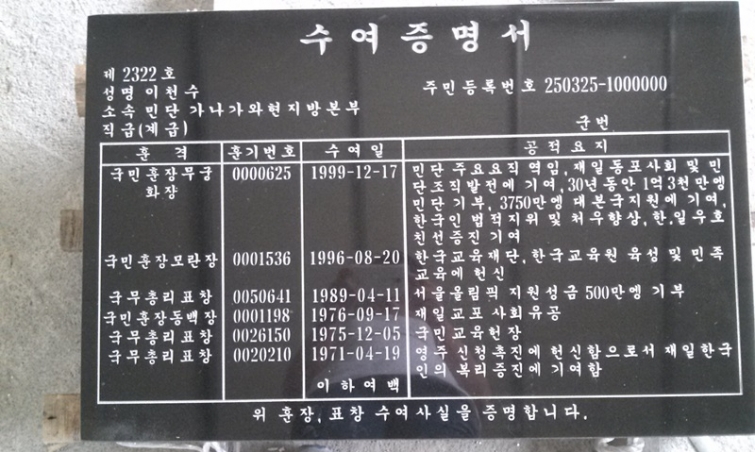 수여증명서
제 2322 호
성명 이천수
주민등록번호 250325-1000000
소속 민단 가나가와현지방본부
직급(계급)
군번
훈격 훈기번호 수여일 공적요지
국민훈장무궁화장 0000625 1999-12-17 민단 주요요직 역임, 재일동포사회 및 민
단조직발전에 기여, 30년 동안 1억 3천만엥
민단 기부, 3750만엥 대본국지원에 기여,
한국인 법적지위 및 처우향상, 한,일우호
친선증진 기여
국민훈장모란장 0001536 1996-08-20 한국교육재단, 한국교육원 육성 및 민족
교육에 헌신
국무총리표창 0050641 1989-04-11 서울올림픽 지원성금 500만엥 기부
국민훈장동백장 0001198 1976-09-17 재일교포 사회유공
국무총리표창 0026150 1975-12-05 국민교육헌장
국무총리표창 0020210 1971-04-19 영주 신청촉진에 헌신함으로서 재일한국
인의 복리증진에 기여함
이하여백
위 훈장, 표창 수여사실을 증명합니다.